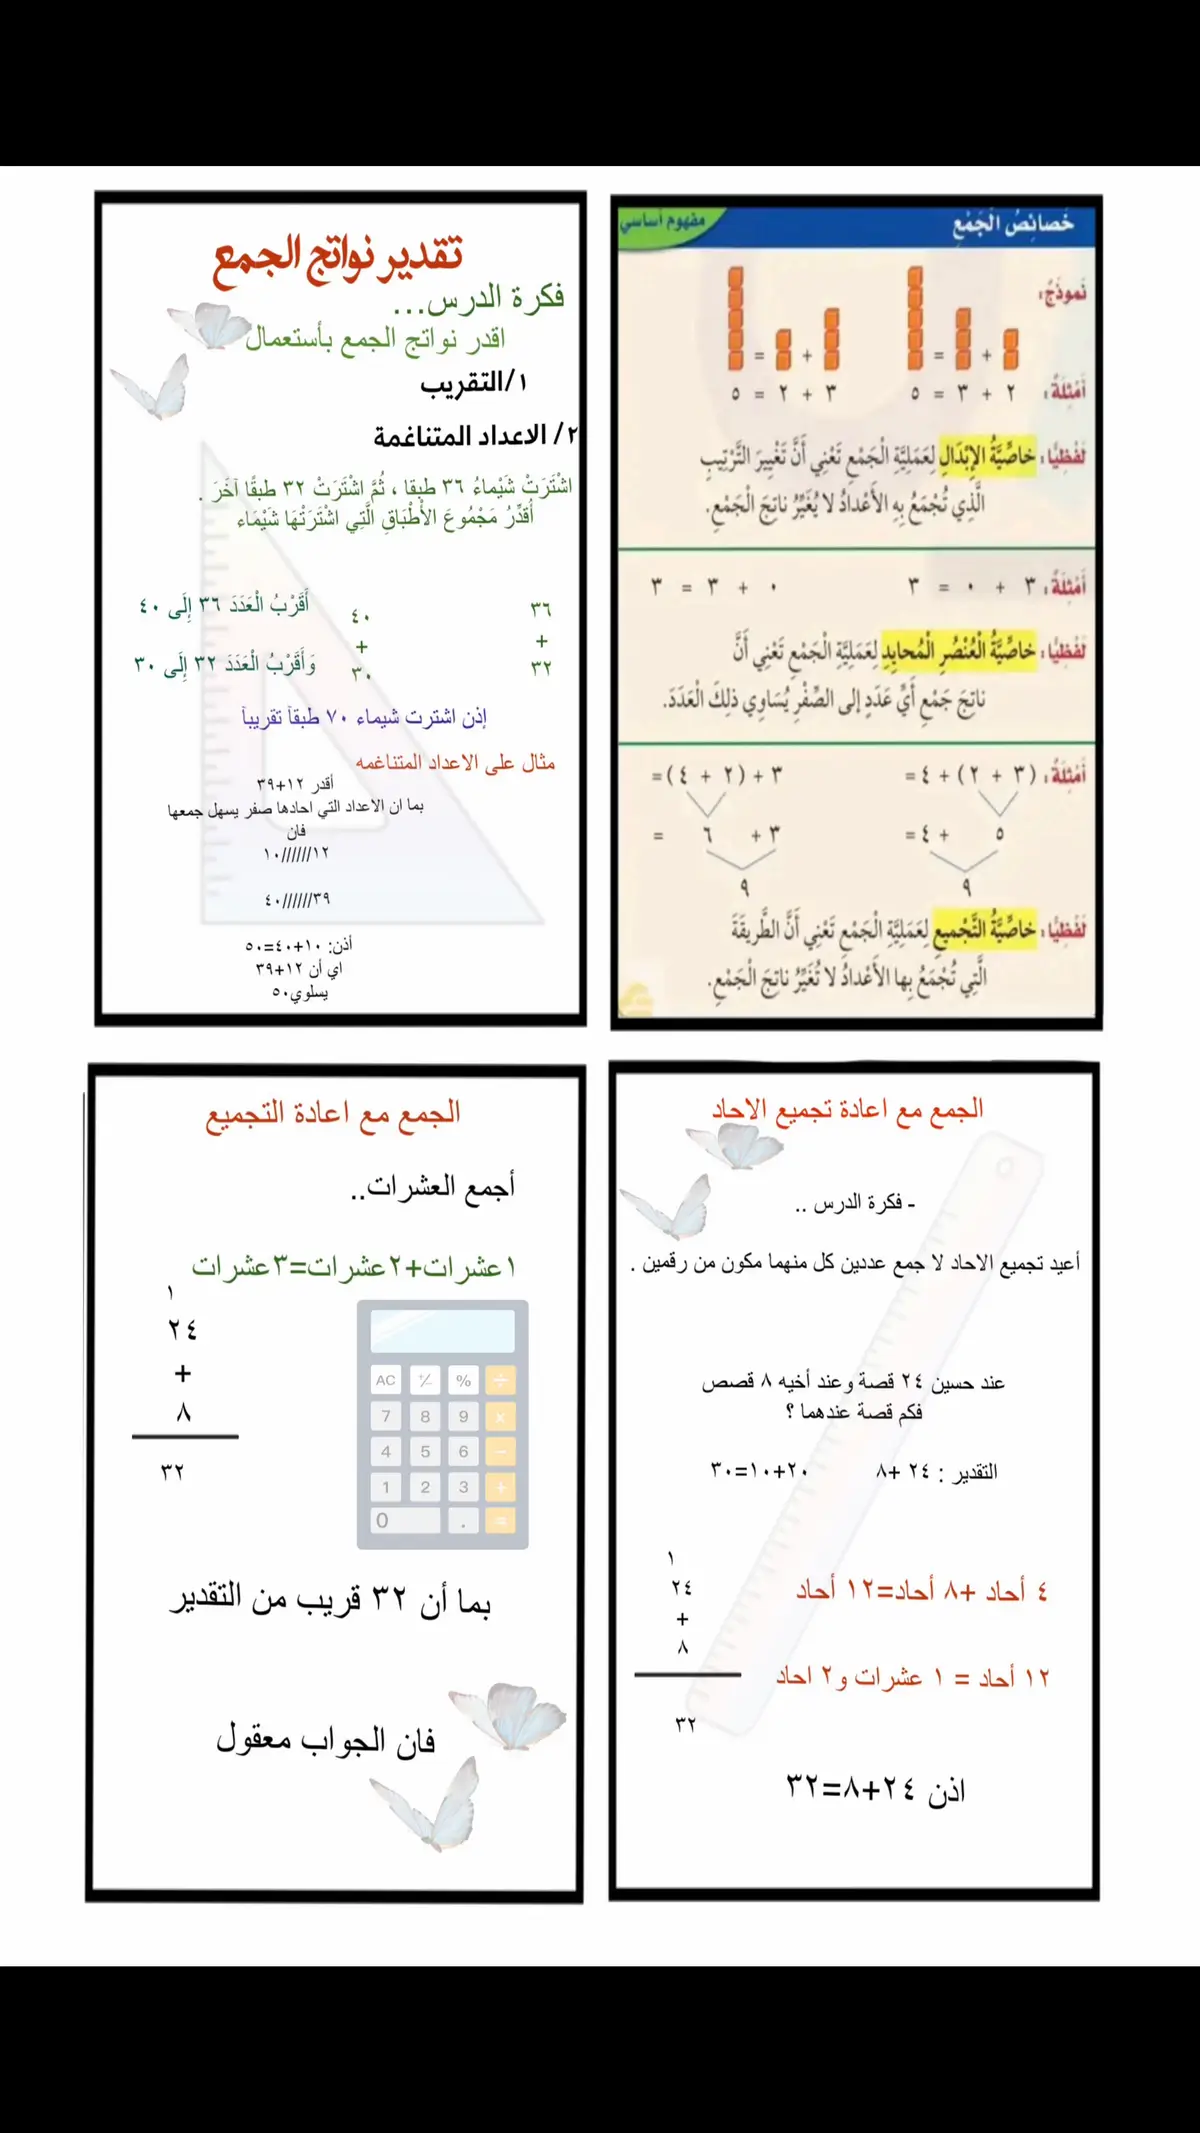 خَصائِصُ الْجَمْعِ
مفهوم أساسي
نَموذَجُ:
+ =
+ =
أَمْثِلَةٌ: ٢ + ٣ = ٥
٣ + ٢ = ٥
لَفْظِيًّا: خاصِّيَّةُ الإِبْدَالِ لِعَمَلِيَّةِ الْجَمْعِ تَعْنِي أَنَّ تَغْيِيرَ التَّرْتِيبِ
الَّذِي تُجْمَعُ بِهِ الأَعْدادُ لا يُغَيِّرُ ناتِجَ الْجَمْعِ.
أَمْثِلَةٌ: ٣ + ٠ = ٣
٠ + ٣ = ٣
لَفْظِيًّا: خاصِّيَّةُ الْعُنْصُرِ الْمُحايِدِ لِعَمَلِيَّةِ الْجَمْعِ تَعْنِي أَنَّ
ناتِجَ جَمْعِ أَيِّ عَدَدٍ إلى الصِّفْرِ يُسَاوِي ذلِكَ الْعَدَدَ.
أَمْثِلَةٌ: (٣ + ٢) + ٤ =
٣ + (٢ + ٤) =
٥ + ٤ =
٣ + ٦ =
٩
٩
لَفْظِيًّا: خاصِّيَّةُ التَّجْميعِ لِعَمَلِيَّةِ الْجَمْعِ تَعْنِي أَنَّ الطَّرِيقَةَ
الَّتِي تُجْمَعُ بِها الأَعْدادُ لا تُغَيِّرُ ناتِجَ الْجَمْعِ.
تقدير نواتج الجمع
فكرة الدرس...
اقدر نواتج الجمع بأستعمال
١/التقريب
٢/ الاعداد المتناغمة
اشْتَرَتْ شَيْماءُ ٣٦ طبقا ، ثُمَّ اشْتَرَتْ ٣٢ طبقًا آخَرَ .
أُقَدِّرُ مَجْمُوعَ الأَطْبَاقِ الَّتِي اشْتَرَتْهَا شَيْمَاء
٣٦ ٤٠ أَقَرْبُ الْعَدَدَ ٣٦ إِلَى ٤٠
+ +
٣٢ ٣٠ وَأَقَرْبُ الْعَدَدَ ٣٢ إِلَى ٣٠
إذن اشترت شيماء ٧٠ طبقاً تقريباً
مثال على الاعداد المتناغمه
أقدر ١٢+٣٩
بما ان الاعداد التي احادها صفر يسهل جمعها
فان
١٢//////١٠
٣٩//////٤٠
أذن: ١٠+٤٠=٥٠
اي أن ١٢+٣٩
يسلوي٥٠
الجمع مع اعادة تجميع الاحاد
- فكرة الدرس ..
أعيد تجميع الاحاد لا جمع عددين كل منهما مكون من رقمين .
عند حسين ٢٤ قصة وعند أخيه ٨ قصص
فكم قصة عندهما ؟
التقدير : ٢٤ +٨ ٢٠+١٠=٣٠
٤ أحاد +٨ أحاد=١٢ أحاد
١٢ أحاد = ١ عشرات و٢ احاد
١
٢٤
+
٨
٣٢
اذن ٢٤+٨=٣٢
الجمع مع اعادة التجميع
أجمع العشرات..
١عشرات+٢عشرات=٣عشرات
١
٢٤
+
٨
٣٢
AC +/- % ÷
7 8 9 x
4 5 6 −
1 2 3 +
0 . =
بما أن ٣٢ قريب من التقدير
فان الجواب معقول